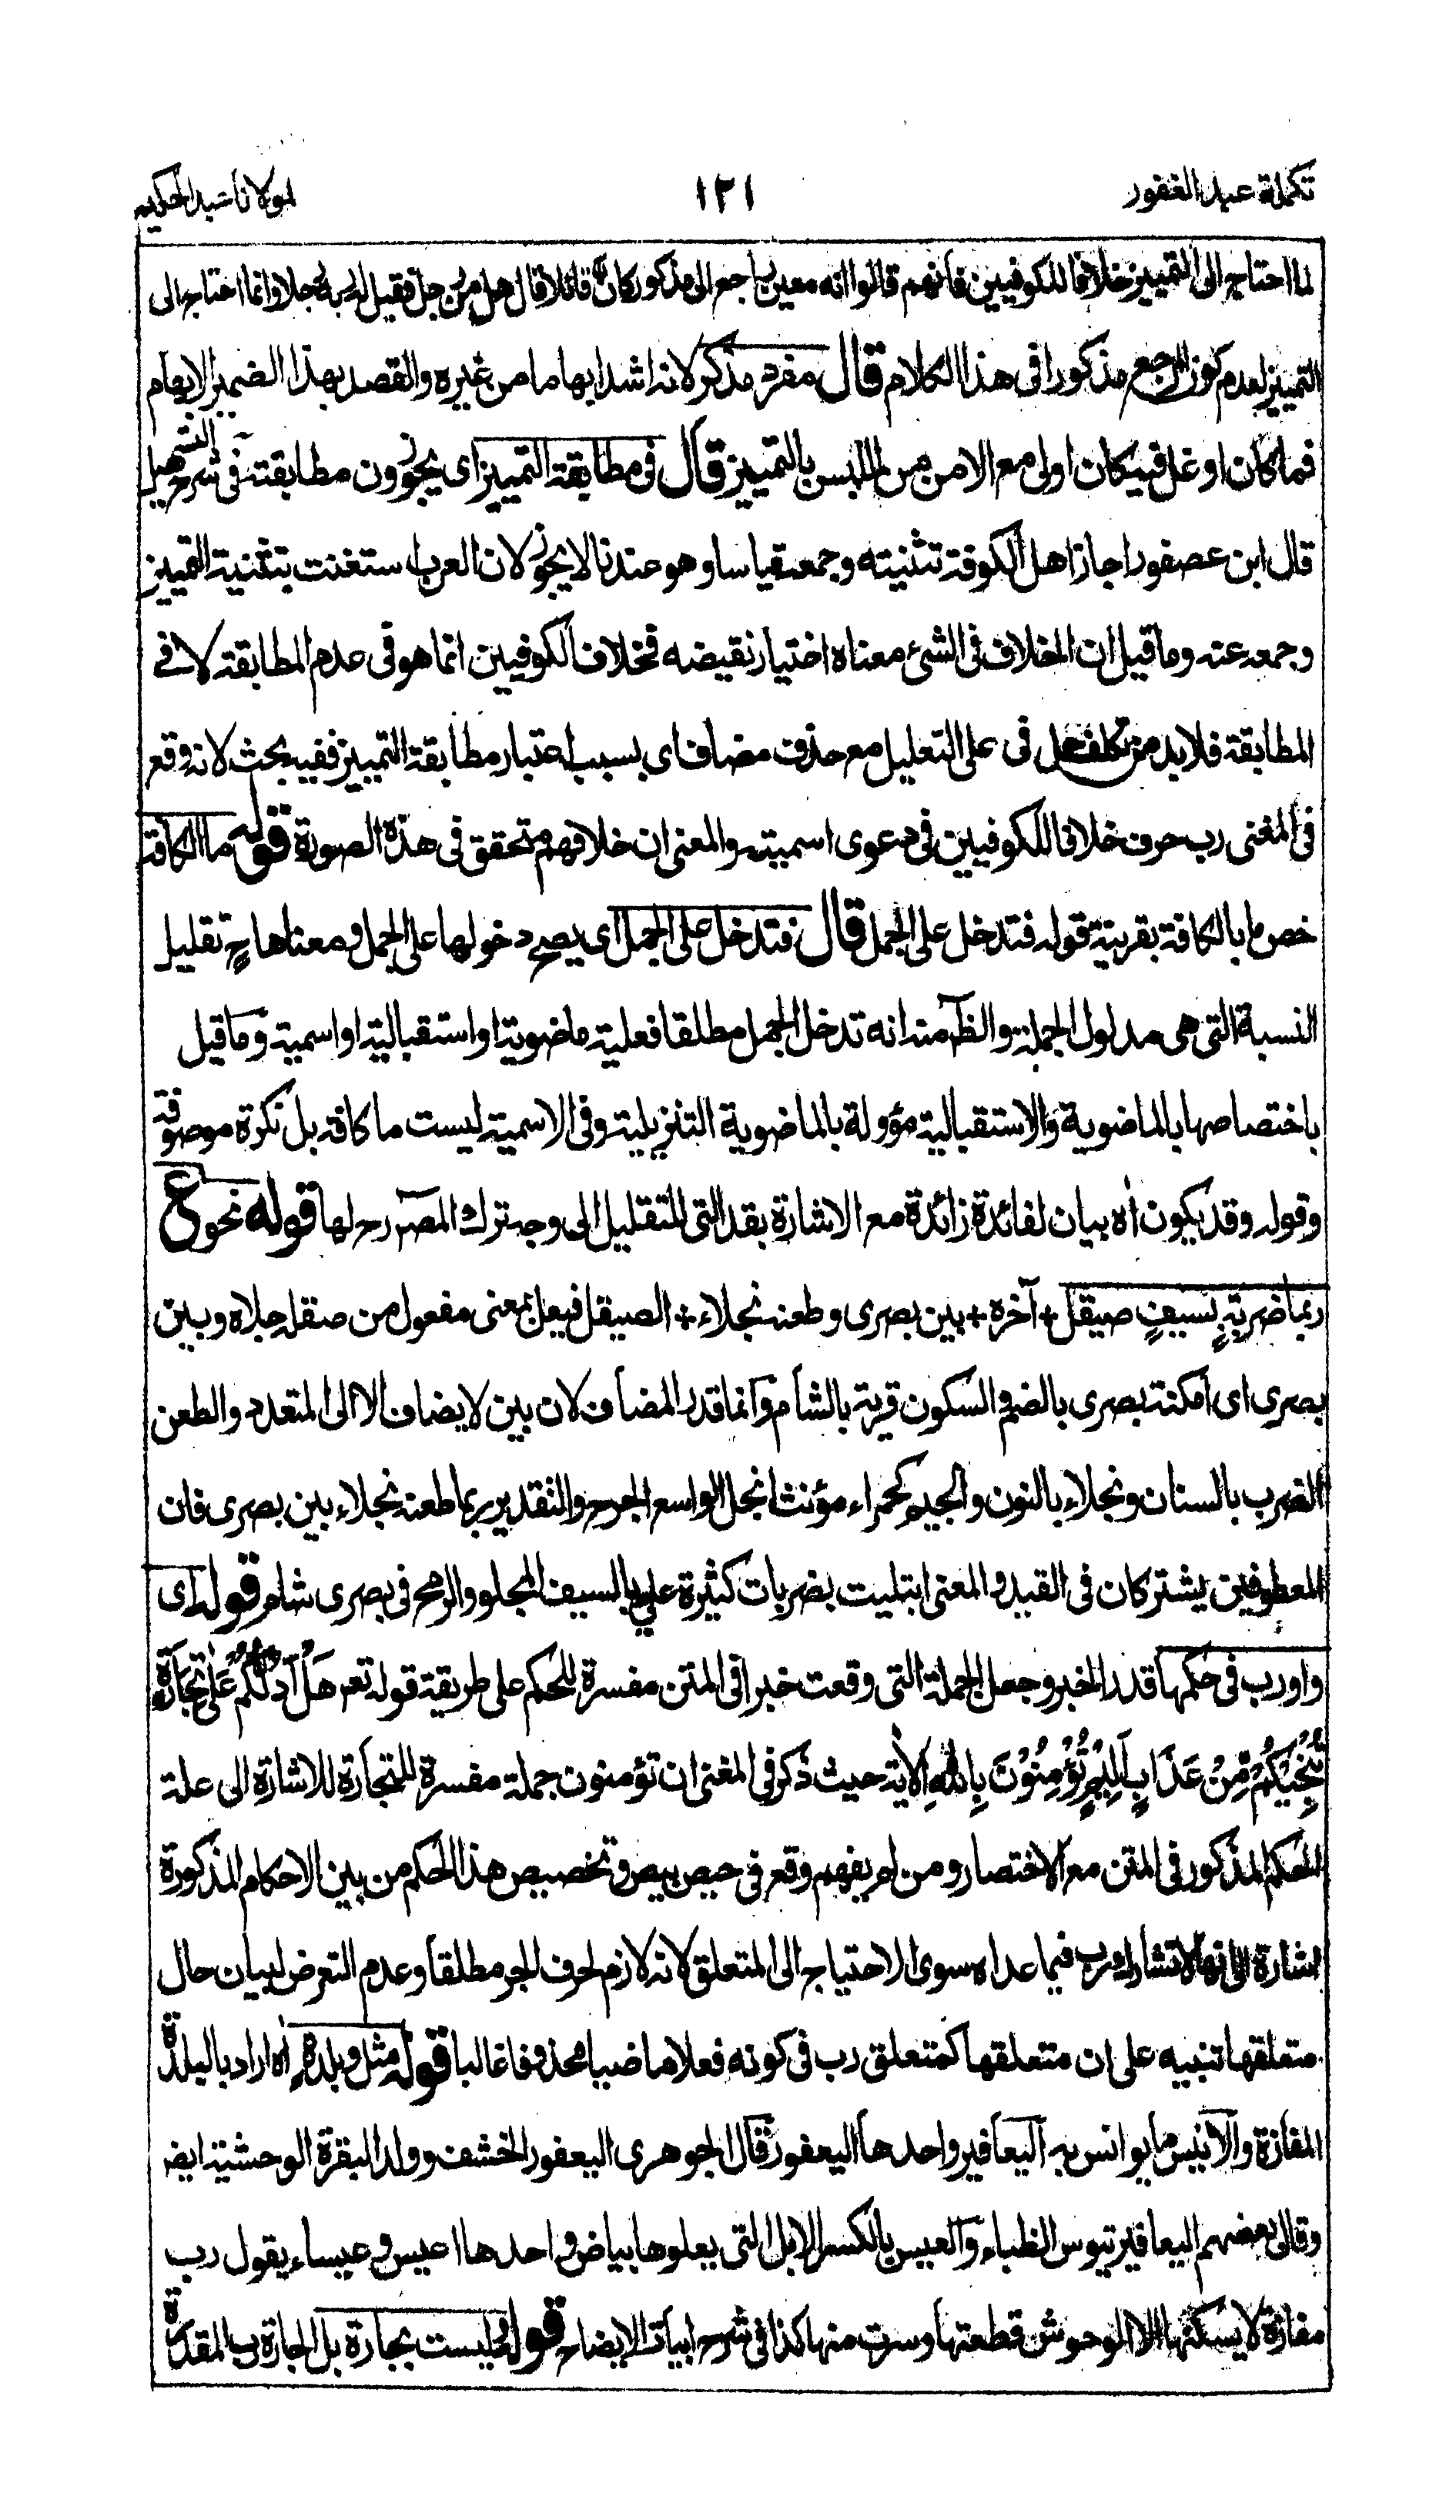 تكملة عبد الغفور
١٢١
لمولانا عبد الحكيم
لما احتاج الى التمييز خلافا للكوفيين فانهم قالوا انه معين راجع الى مذكور كان قائلا قال هل من رجل فقيل ربه رجلا وانما احتاج الى
التمييز لعدم كون المرجع مذكورا فى هذا الكلام قال مفرد مذكر لانه اشد ابهاما من غيره والقصد بهذا الضمير الابهام
فما كان اوغل فيه كان اولى مع الامن من اللبس بالتمييز قال فى مطابقة التمييز اى يجوزون مطابقته فى شرح التسهيل
قال ابن عصفور اجاز اهل الكوفة تثنيته وجمعه قياسا وهو عندنا لا يجوز لان العرب استغنت بتثنية التمييز
وجمعه عنه وما قيل ان الخلاف فى الشئ معناه اختيار نقيضه فخلاف الكوفيين انما هو فى عدم المطابقة لا فى
المطابقة فلا بد من تكلف حمل فى على التعليل مع حذف مضاف اى بسبب اعتبار مطابقة التمييز ففيه بحث لانه وقع
فى المغنى رب حرف خلافا للكوفيين فى دعوى اسميته والمعنى ان خلافهم متحقق فى هذه الصورة قوله ما الكافة
خص ما بالكافة بقرينة قوله فتدخل على الجمل قال فتدخل على الجمل اى يصح دخولها على الجمل ومعناها ح تقليل
النسبة التى هى مدلول الجملة والظ منه انه تدخل الجمل مطلقا فعلية ماضوية او استقبالية او اسمية وما قيل
باختصاصها بالماضوية والاستقبالية مؤولة بالماضوية التنزيلية وفى الاسمية ليست ما كافة بل نكرة موصوفة
وقوله وقد يكون اه بيان لفائدة زائدة مع الاشارة بقد التى للتقليل الى وجه ترك المصنف رح لها قوله نحو ع
ربما ضربة بسيف صيقل ÷ آخره ÷ بين بصرى وطعنة نجلاء ÷ الصيقل فيعل بمعنى مفعول من صقله جلاه وبين
بصرى اى امكنة بصرى بالضم والسكون قرية بالشام وانما قدر المضاف لان بين لا يضاف الا الى المتعدد والطعن
الضرب بالسنان ونجلاء بالنون والجيم كحمراء مؤنث انجل الواسع الجرح والتقدير ربما طعنة نجلاء بين بصرى فان
المعطوفين يشتركان فى القيد والمعنى ابتليت بضربات كثيرة على بالسيف المجلو والرمح فى بصرى شام قوله اى
واو رب فى حكمها قدر الخبر وجعل الجملة التى وقعت خبرا فى المتن مفسرة للحكم على طريقة قوله تعه هَلْ اَدُلُّكُمْ عَلٰى تِجَارَةٍ
تُنْجِيْكُمْ مِّنْ عَذَابٍ اَلِيْمٍ تُؤْمِنُوْنَ بِاللّٰهِ الآية حيث ذكر فى المغنى ان تؤمنون جملة مفسرة للتجارة للاشارة الى علة
الحكم المذكور فى المتن مع الاختصار ومن لم يفهم وقع فى حيص بيص وتخصيص هذا الحكم من بين الاحكام المذكورة
اشارة الى انها لا تشارك رب فيما عداه سوى الاحتياج الى المتعلق لانه لازم لحرف الجر مطلقا وعدم التعرض لبيان حال
متعلقها تنبيه على ان متعلقها كمتعلق رب فى كونه فعلا ماضيا محذوفا غالبا قوله مثل وبلدة اه اراد بالبلدة
المفازة والانيس ما يوانس به اليعافير واحدها اليعفور قال الجوهرى اليعفور الخشف وولد البقرة الوحشية ايضا
وقال بعضهم اليعافير تيوس الظباء والعيس بالكسر الابل التى يعلوها بياض واحدها اعيس وعيساء يقول رب
مفازة لا يسكنها الا الوحوش قطعتها وسرت منها كذا فى شرح ابيات الايضاح قوله ليست بجارة بل الجارة رب المقدرة